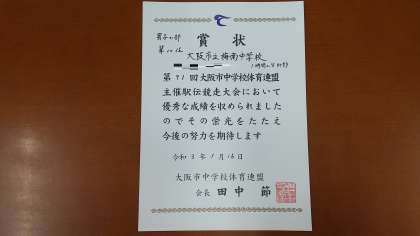 男子の部
賞状
第10位
大阪市立梅南中学校
第71回大阪市中学校体育連盟
主催駅伝競走大会において
優秀な成績を収められました
のでその栄光をたたえ
今後の努力を期待します
令和3年1月16日
大阪市中学校体育連盟
会長 田中 節